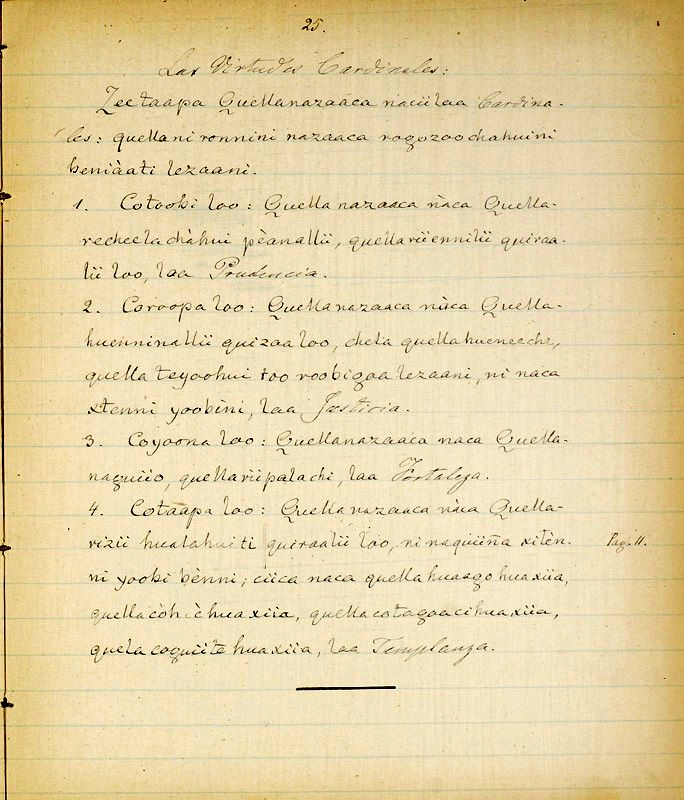 25.
Las Virtudes Cardinales:
Zeetaapa Quellanazaaca naciilaa Cardina-
les: quellani ronnini nazaaca rogozoochahuini
beniàati lezaani.
1. Cotoobi loo: Quellanazaaca nàca Quella-
recheelachàhui pèanallii, quellariiennilii quiraa-
lii loo, laa Prudencia.
2. Coroopa loo: Quellanazaaca nàca Quella-
huenninallii quizaaloo, chela quellahueneeche,
quella teyoohui too roobigaa lezaani, ni naca
xtenni yoobini, laa Justicia.
3. Coyoona loo: Quellanazaaca naca Quella-
naguiio, quellariipalachi, laa Fortaleza.
4. Cotaapa loo: Quellanazaaca nàca Quella-
rizii hualahuiti quiraalii loo, ni naquiiña xitèn-
ni yoobi bènni; ciica naca quellahuaagohuaxiia,
quellacòhichuaxiia, quellacotagaacihuaxiia,
quela coguiitehuaxiia, laa Templanza.
Pag. 11.